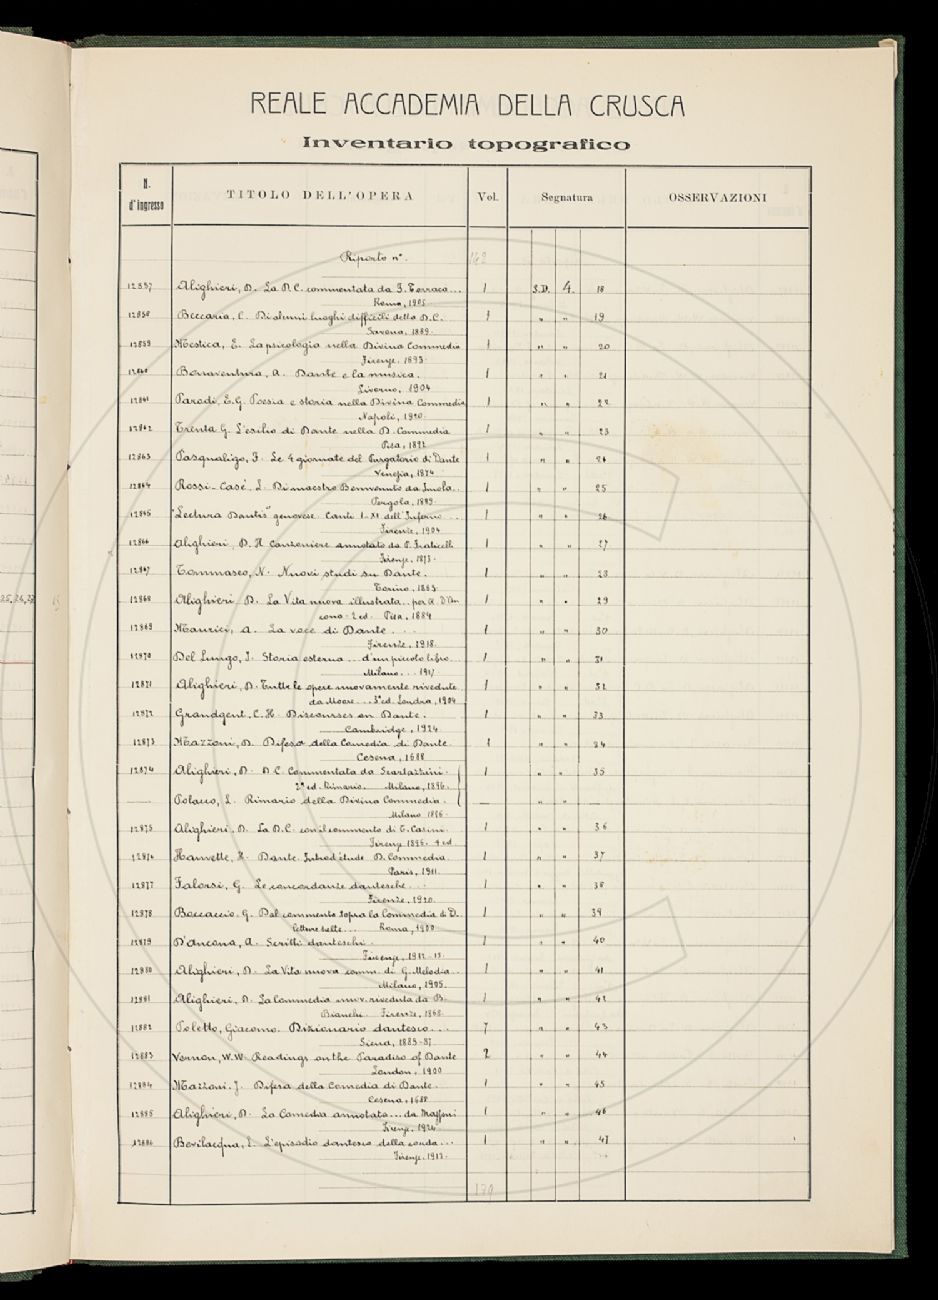 REALE ACCADEMIA DELLA CRUSCA
Inventario topografico
N. d'ingresso TITOLO DELL'OPERA Vol. Segnatura OSSERVAZIONI
Riporto n°. 142
12857 Alighieri, D. La D.C. commentata da F. Torraca... 1 S.D. 4. 18
Roma, 1905
12858 Beccaria, C. Di alcuni luoghi difficili della D.C. 1 " " 19
Savona, 1889.
12859 Mestica, E. La psicologia nella Divina Commedia 1 " " 20
Firenze, 1893.
12860 Bonaventura, A. Dante e la musica. 1 " " 21
Livorno, 1904
12861 Parodi, E.G. Poesia e storia nella Divina Commedia 1 " " 22
Napoli, 1920.
12862 Trenta G. L'esilio di Dante nella D. Commedia 1 " " 23
Pisa, 1892
12863 Pasqualigo, F. Le 4 giornate del Purgatorio di Dante 1 " " 24
Venezia, 1874
12864 Rossi-Casè, L. Di maestro Benvenuto da Imola.. 1 " " 25
Pergola, 1889.
12865 "Lectura Dantis" genovese. Canti I-XI dell'Inferno... 1 " " 26
Firenze, 1904
12866 Alighieri, D. Il Canzoniere annotato da P. Fraticelli 1 " " 27
Firenze, 1873.
12867 Tommaseo, N. Nuovi studi su Dante. 1 " " 28
Torino, 1865
12868 Alighieri, D. La Vita nuova illustrata.. per A. D'An 1 " " 29
cona. 2 ed. Pisa, 1884
12869 Maurici, A. La voce di Dante... 1 " " 30
Firenze, 1918.
12870 Del Lungo, I. Storia esterna... d'un piccolo libro... 1 " " 31
Milano... 1917.
12871 Alighieri, D. Tutte le opere nuovamente rivedute 1 " " 32
da Moore... 3ª ed. Londra, 1904
12872 Grandgent, C.H. Discourses on Dante. 1 " " 33
Cambridge, 1924
12873 Mazzoni, D. Difesa della Comedia di Dante. 1 " " 34
Cesena, 1688
12874 Alighieri, D. D.C. Commentata da Scartazzini. 1 " " 35
2ª ed. Rimario. Milano, 1896.
Polacco, L. Rimario della Divina Commedia. " "
Milano 1896.
12875 Alighieri, D. La D.C. con il commento di T. Casini. 1 " " 36
Firenze 1896. 4 ed
12876 Hauvette, H. Dante. Introd. étude D. Commedia. 1 " " 37
Paris, 1911.
12877 Falorsi, G. Le concordanze dantesche... 1 " " 38
Firenze, 1920.
12878 Boccaccio, G. Dal commento sopra la Commedia di D. 1 " " 39
Letture scelte... Roma, 1900
12879 D'Ancona, A. Scritti danteschi. 1 " " 40
Firenze, 1912-13.
12880 Alighieri, D. La Vita nuova comm. di G. Melodia.. 1 " " 41
Milano, 1905.
12881 Alighieri, D. La Commedia nuov. riveduta da B. 1 " " 42
Bianchi. Firenze, 1868.
12882 Poletto, Giacomo. Dizionario dantesco... 7 " " 43
Siena, 1885-87.
12883 Vernon, W.W. Readings on the Paradiso of Dante 2 " " 44
London, 1900
12884 Mazzoni. J. Difesa della Comedia di Dante. 1 " " 45
Cesena, 1688
12885 Alighieri, D. La Comedia annotata... da Maffeni 1 " " 46
Firenze, 1924
12886 Bevilacqua, E. L'episodio dantesco della corda... 1 " " 47
Firenze, 1912.
179